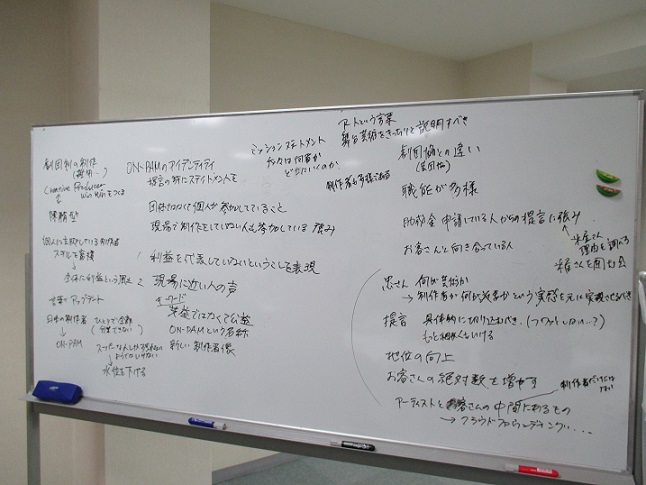 アートという言葉
舞台芸術をきっちりと説明すべき
ミッションステートメント
我々は何者か
どこにいくのか
制作者も多様である
劇団制の制作
(雇用…)
Creative Producer
Win Winをつくる
ON-PAMのアイデンティティ
提言の所にステイトメントを
団体ではなくて個人が参加していること
現場で制作をしていない人も参加している強み
個人で主宰している制作者
スキルを蓄積
↓
全体に利益という風土
利益を代表していないということを表現
現場に近い人の声
キーワード
業益ではなくて公益
ON-PAMという名称
新しい制作者像
仕事のアップデート
日本の制作者
ひとりで全部
(分業できない)
↓
ON-PAM
↓
水位を下げる
劇団協との違い
(芸団協)
職能が多様
助成金申請している人からの提言に強み
お客さんと向き合っている人
米屋さん
理由を調べる
米屋さんを囲む会
忠さん 何が芸術か
→制作者が何が必要かという実感を元に実現させるべき
提言 具体的に切り込むべき。
もっと細かくもいける
地位の向上
お客さんの絶対数を増やす
アーティストとお客さんの中間にあるもの
制作者だけじゃない
→クラウドファウンディング...